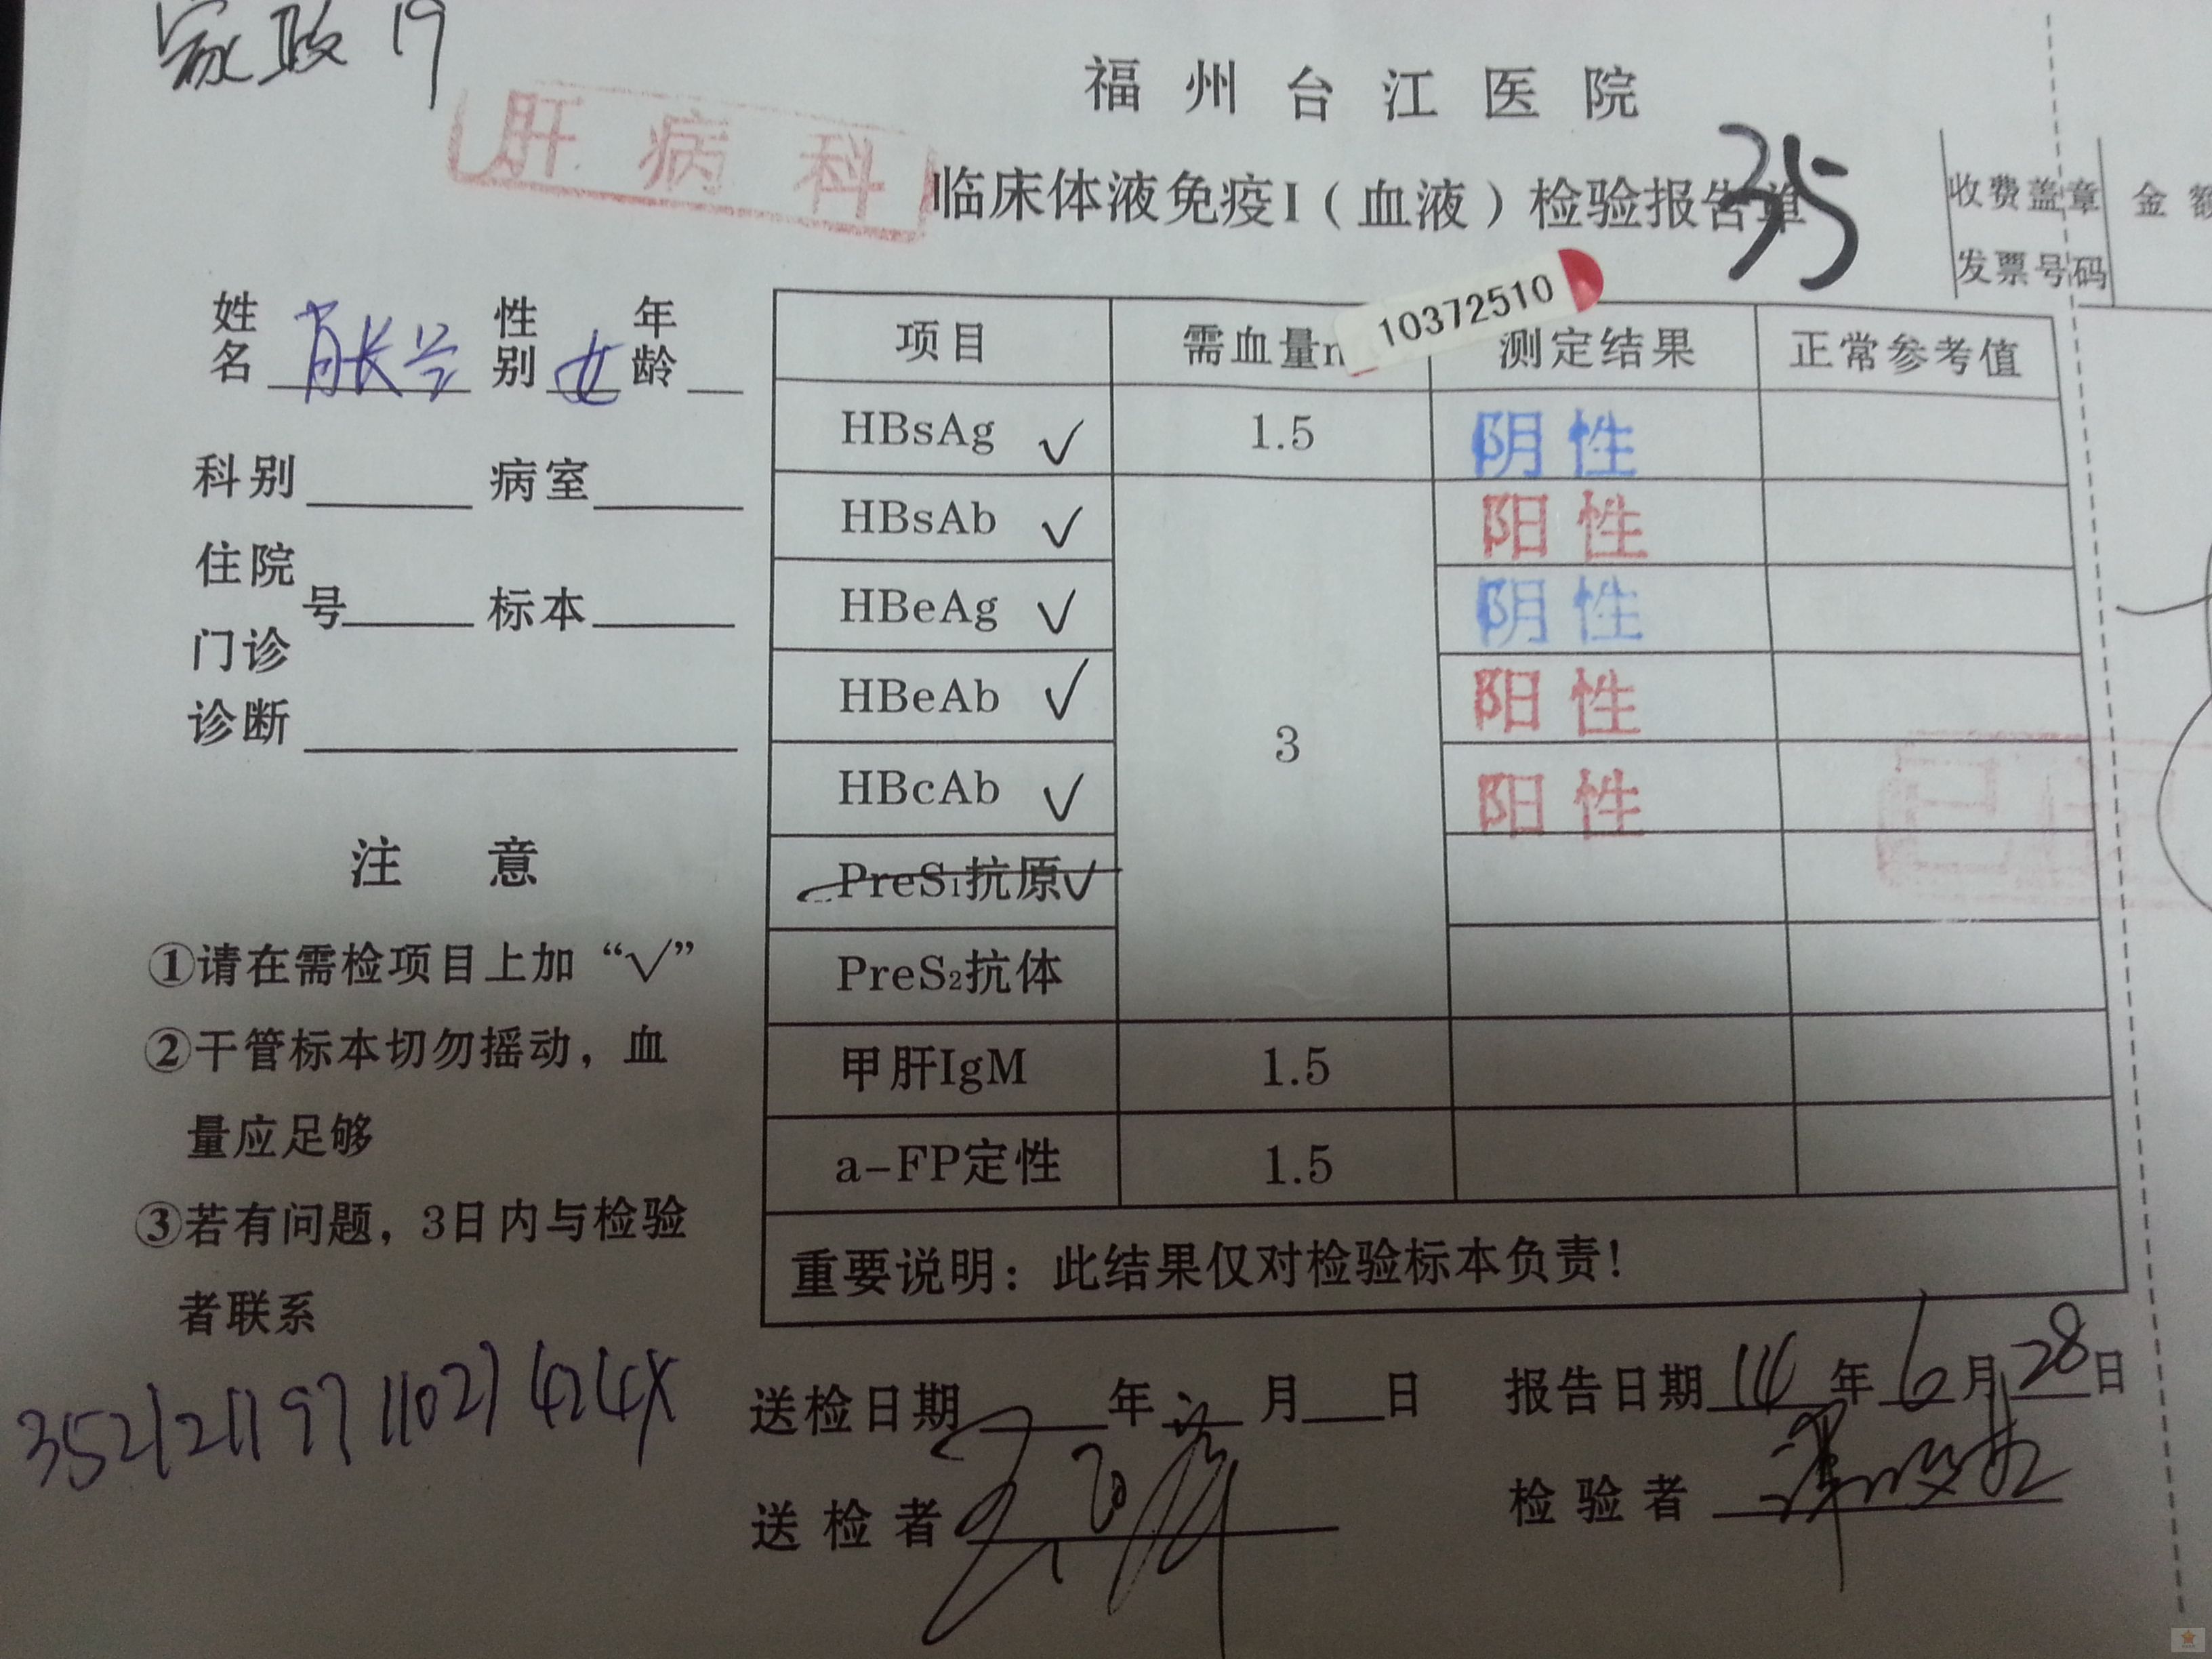 家政 19
福州台江医院
肝病科
临床体液免疫I（血液）检验报告单
35
收费盖章 金额
发票号码
10372510
姓名 肖长兰 性别 女 年龄
科别 病室
住院
门诊 号 标本
诊断
注 意
①请在需检项目上加“√”
②干管标本切勿摇动，血
量应足够
③若有问题，3日内与检验
者联系
项目 需血量 测定结果 正常参考值
HBsAg √ 1.5 阴性
HBsAb √ 阳性
HBeAg √ 阴性
HBeAb √ 阳性
3
HBcAb √ 阳性
PreS₁抗原√
PreS₂抗体
甲肝IgM 1.5
a-FP定性 1.5
重要说明：此结果仅对检验标本负责！
送检日期 年 月 日 报告日期 14 年 6 月 28 日
送检者 检验者